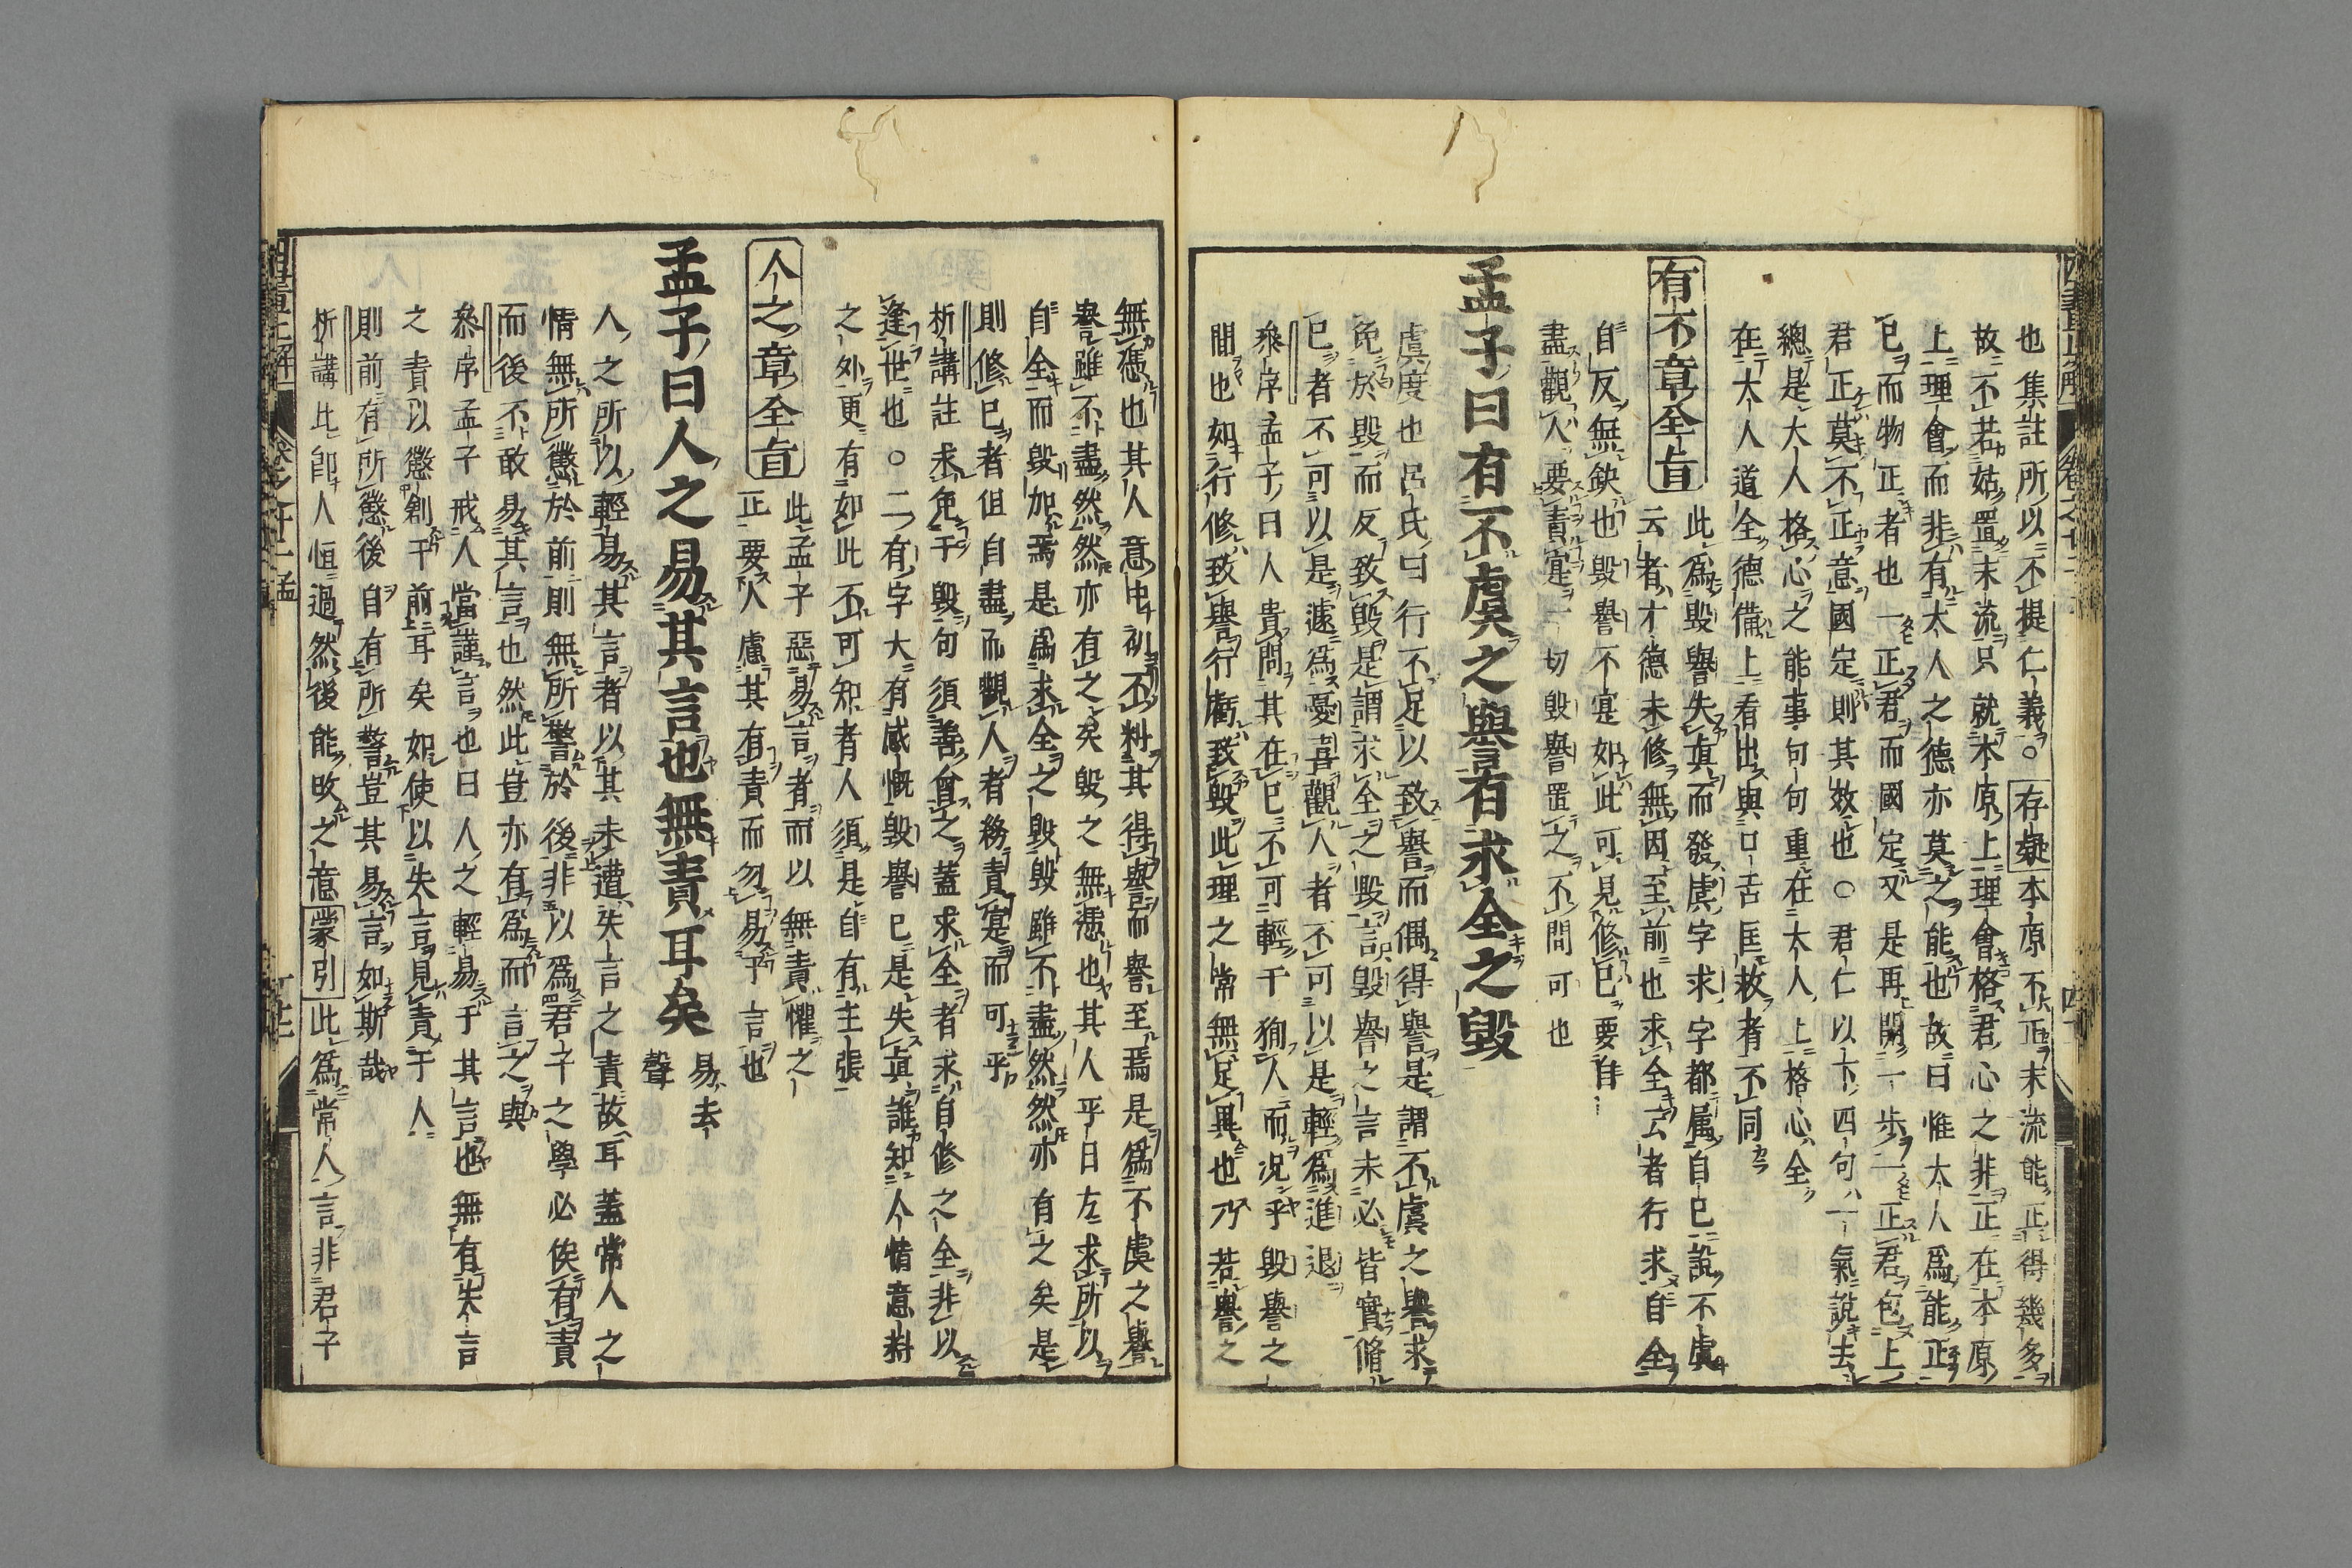 也集註所以不提仁義○存疑本原不正末流能正得幾多
故不若姑置末流只就本原上理會格君心之非正在本原
上理會而非有大人之德亦莫之能也故曰惟大人爲能正
已而物正者也一正君而國定又是再開一步一正君包上
君正莫不正意國定則其效也○君仁以下四句一氣說去
總是大人格心之能事句句重在大人上格心全
在大人道全德備上看出與口舌匡救者不同
有不章全旨
此爲毀譽失眞而發虞字求字都属自已說不虞
云者才德未修無因至前也求全云者行求自全
自反無缺也毀譽不寔如此可見修已要自
盡觀人要責寔一切毀譽置之不問可也
孟子曰有不虞之譽有求全之毀
虞度也呂氏曰行不足以致譽而偶得譽是謂不虞之譽求
免於毀而反致毀是謂求全之毀言毀譽之言未必皆實脩
已者不可以是遽爲憂喜觀人者不可以是輕爲進退
叅序孟子曰人貴問其在已不可輕千狥人而况乎毀譽之
間也如行修致譽行虧致毀此理之常無足異也乃若譽之
無憑也其人意中初不料其得譽而譽至焉是爲不虞之譽
譽雖不盡然然亦有之矣毀之無憑也其人平日左求所以
自全而毀加焉是爲求全之毀毀雖不盡然然亦有之矣是
則修已者但自盡而觀人者務責寔而可乎
析講註求免于毀句須善會之蓋求全者求自修之全非以
逢世也○二有字大有感慨毀譽已是失眞誰知人情意料
之外更有如此不可知者人須是自有主張
人之章全旨
此孟子惡易言者而以無責懼之
正要人慮其有責而勿易于言也
孟子曰人之易其言也無責耳矣
易去
聲
人之所以輕易其言者以其未遭失言之責故耳蓋常人之
情無所懲於前則無所警於後非以爲君子之學必俟有責
而後不敢易其言也然此豈亦有爲而言之與
叅序孟子戒人當謹言也曰人之輕易于其言也無有失言
之責以懲創于前耳矣如使以失言見責于人
則前有所懲後自有所警豈其易言如斯哉
析講此卽人恒過然後能改之意蒙引此爲常人言非君子